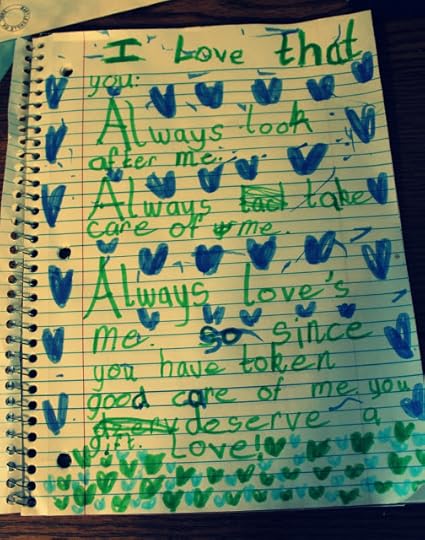 I Love that
you:
Always look
after me.
Always take
care of me.
Always love's
me. so since
you have token
good care of me you
deserve a
gift. Love!